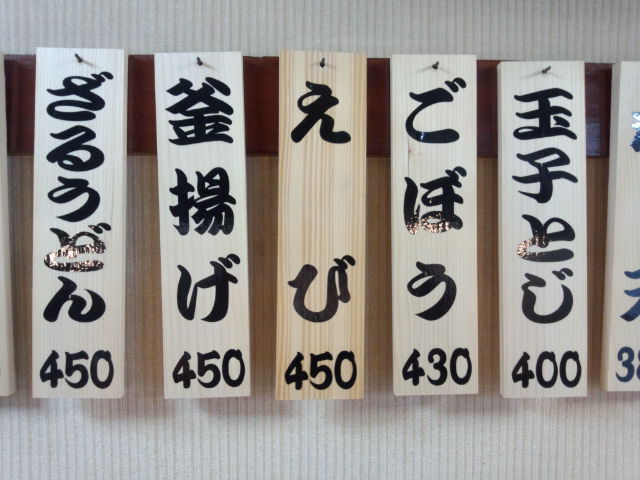 ざるうどん
450
釜揚げ
450
えび
450
ごぼう
430
玉子とじ
400